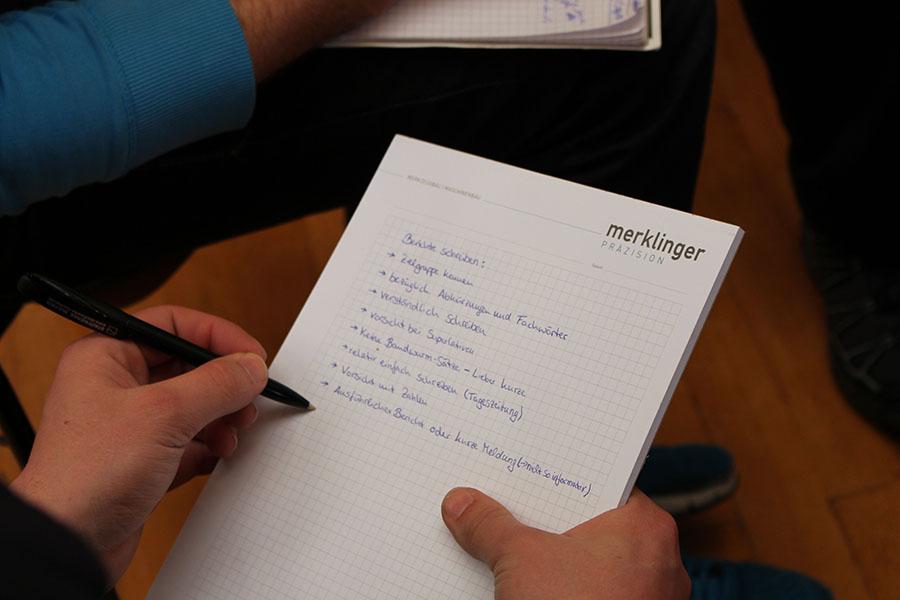 WERKZEUGBAU / MASCHINENBAU
merklinger
PRÄZISION
Berichte schreiben:
→ Zielgruppe kennen
→ bezüglich Abkürzungen und Fachwörter
→ verständlich schreiben
→ vorsicht bei Supalativen
→ Keine Bandwurm-Sätze - Lieber kurze
→ relativ einfach schreiben (Tageszeitung)
→ Vorsicht mit Zahlen
→ Ausführlicher Bericht oder kurze Meldung (→ nicht so informativ)